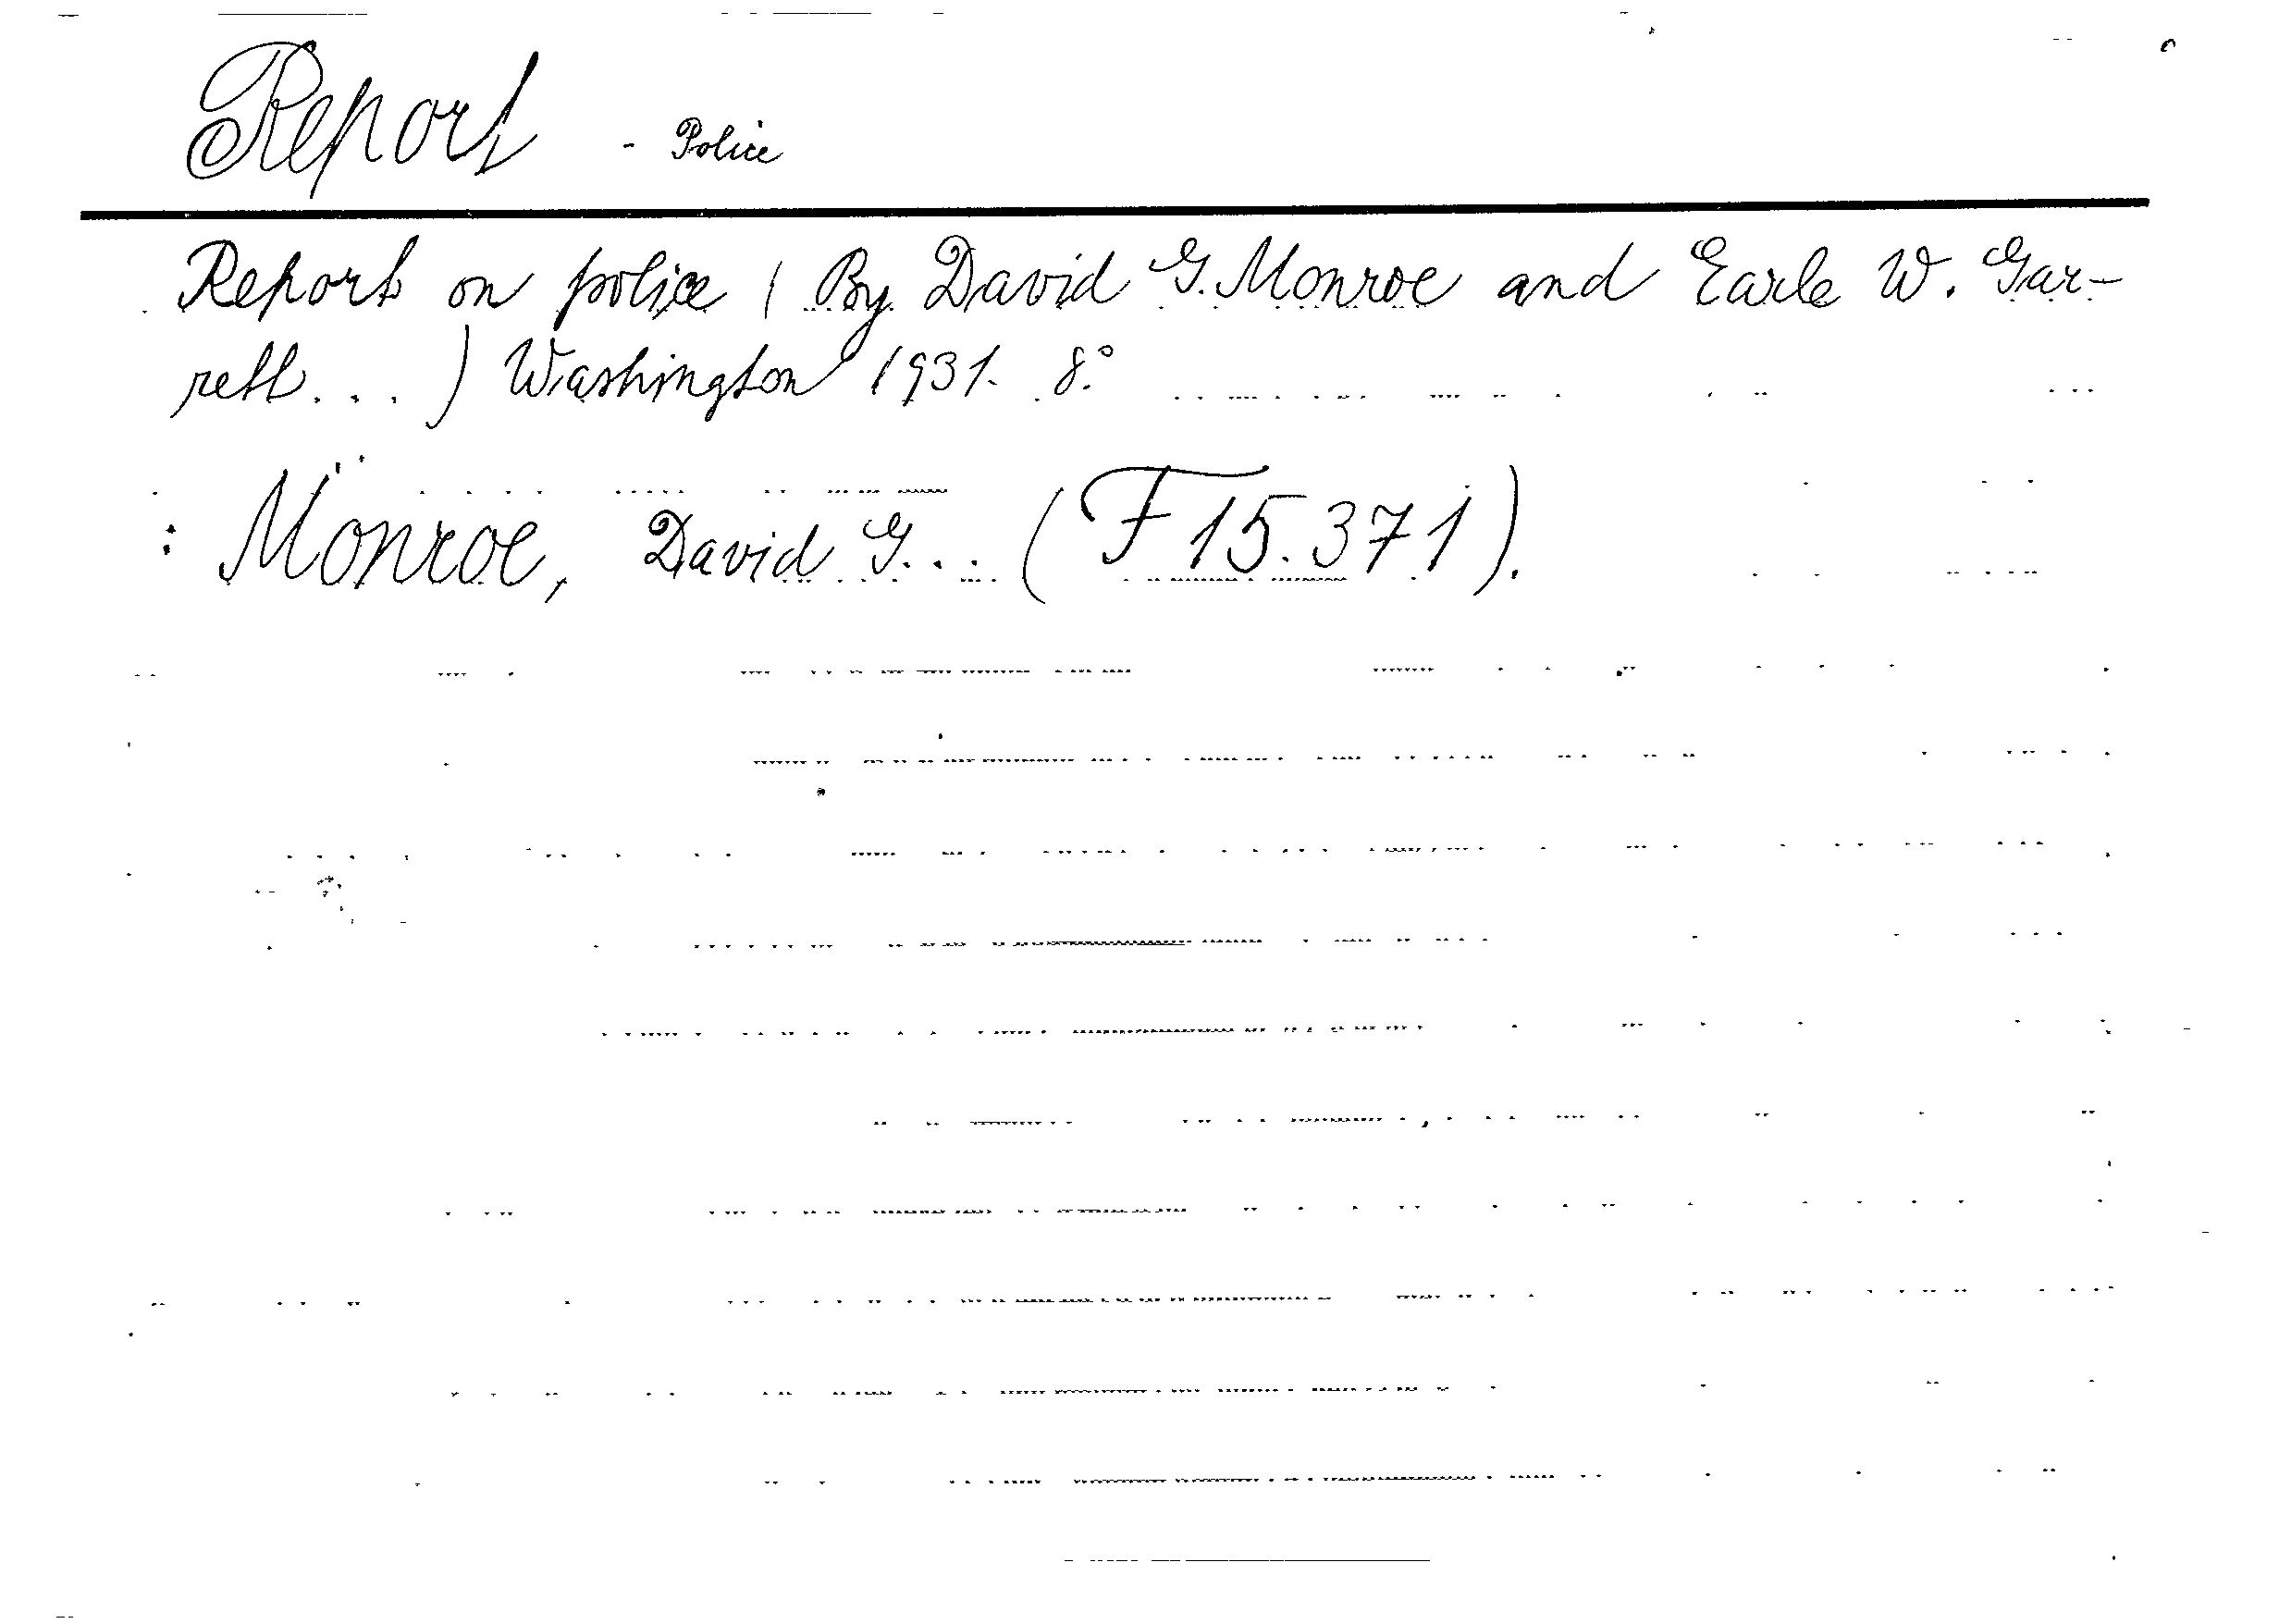 Report - Police
Report on police ( By David G. Monroe and Earle W. Gar-
rett . . . ) Washington 1931. 8°.
: Monroe, David G. . . (F 15.371).